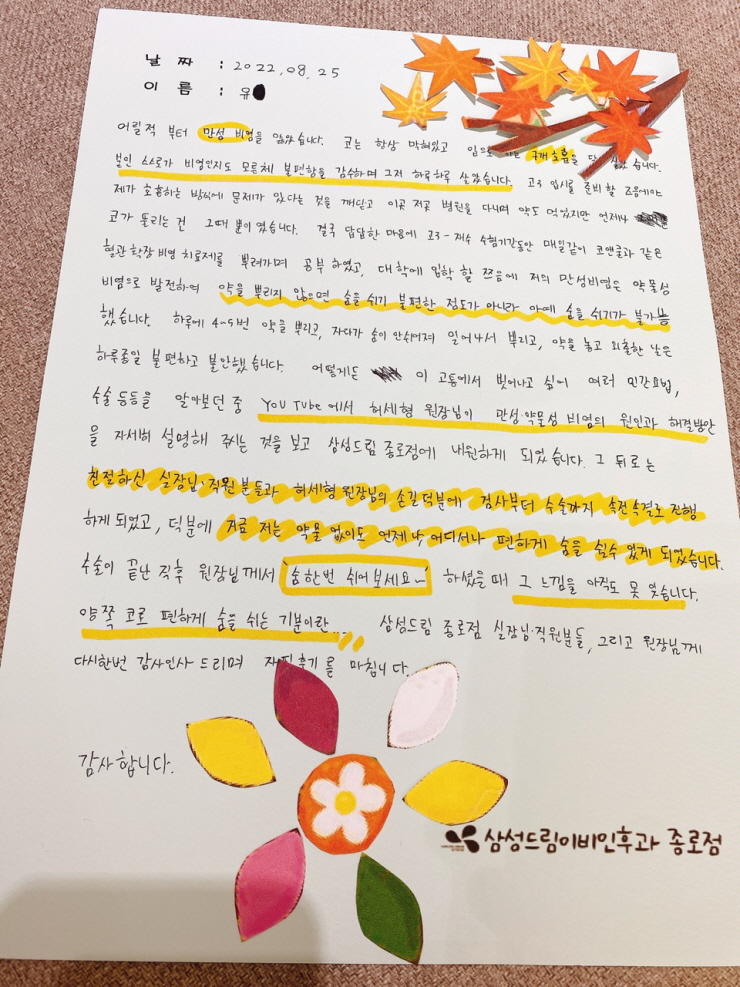 날 짜 : 2022.08.25
이 름 : 유
어릴적 부터 만성 비염을 앓았습니다. 코는 항상 막혀있고 입으로 구개호흡을 달 살았습니다.
본인 스스로가 비염인지도 모른체 불편함을 감수하며 그저 하루하루 살았습니다. 고3 입시를 준비할 즈음에야
제가 호흡하는 방식에 문제가 있다는 것을 깨닫고 이곳 저곳 병원을 다니며 약도 먹었지만 언제나
코가 뚫리는 건 그때 뿐이였습니다. 결국 답답한 마음에 고3-재수 수험기간동안 매일같이 코앤쿨과 같은
혈관 확장 비염 치료제를 뿌려가며 공부 하였고, 대학에 입학 할 쯤에 저의 만성비염은 약물성
비염으로 발전하여 약을 뿌리지 않으면 숨을 쉬기 불편한 정도가 아니라 아예 숨을 쉬기가 불가능
했습니다. 하루에 4~5번 약을 뿌리고, 자다가 숨이 안쉬어져 일어나서 뿌리고, 약을 놓고 외출한 날은
하루종일 불편하고 불안했습니다. 어떻게든 이 고통에서 벗어나고 싶어 여러 민간요법,
수술 등등을 알아보던 중 YouTube에서 허세형 원장님이 만성·약물성 비염의 원인과 해결방안
을 자세히 설명해 주시는 것을 보고 삼성드림 종로점에 내원하게 되었습니다. 그 뒤로는
친절하신 실장님·직원분들과 허세형 원장님의 손길덕분에 검사부터 수술까지 속전속결로 진행
하게 되었고, 덕분에 지금 저는 약물 없이도 언제나, 어디서나 편하게 숨을 쉴수 있게 되었습니다.
수술이 끝난 직후 원장님께서 "숨 한번 쉬어보세요~" 하셨을때 그 느낌을 아직도 못 잊습니다.
양쪽 코로 편하게 숨을 쉬는 기분이란... 삼성드림 종로점 실장님·직원분들, 그리고 원장님께
다시한번 감사인사 드리며 자필후기를 마칩니다.
감사합니다.
삼성드림이비인후과 종로점